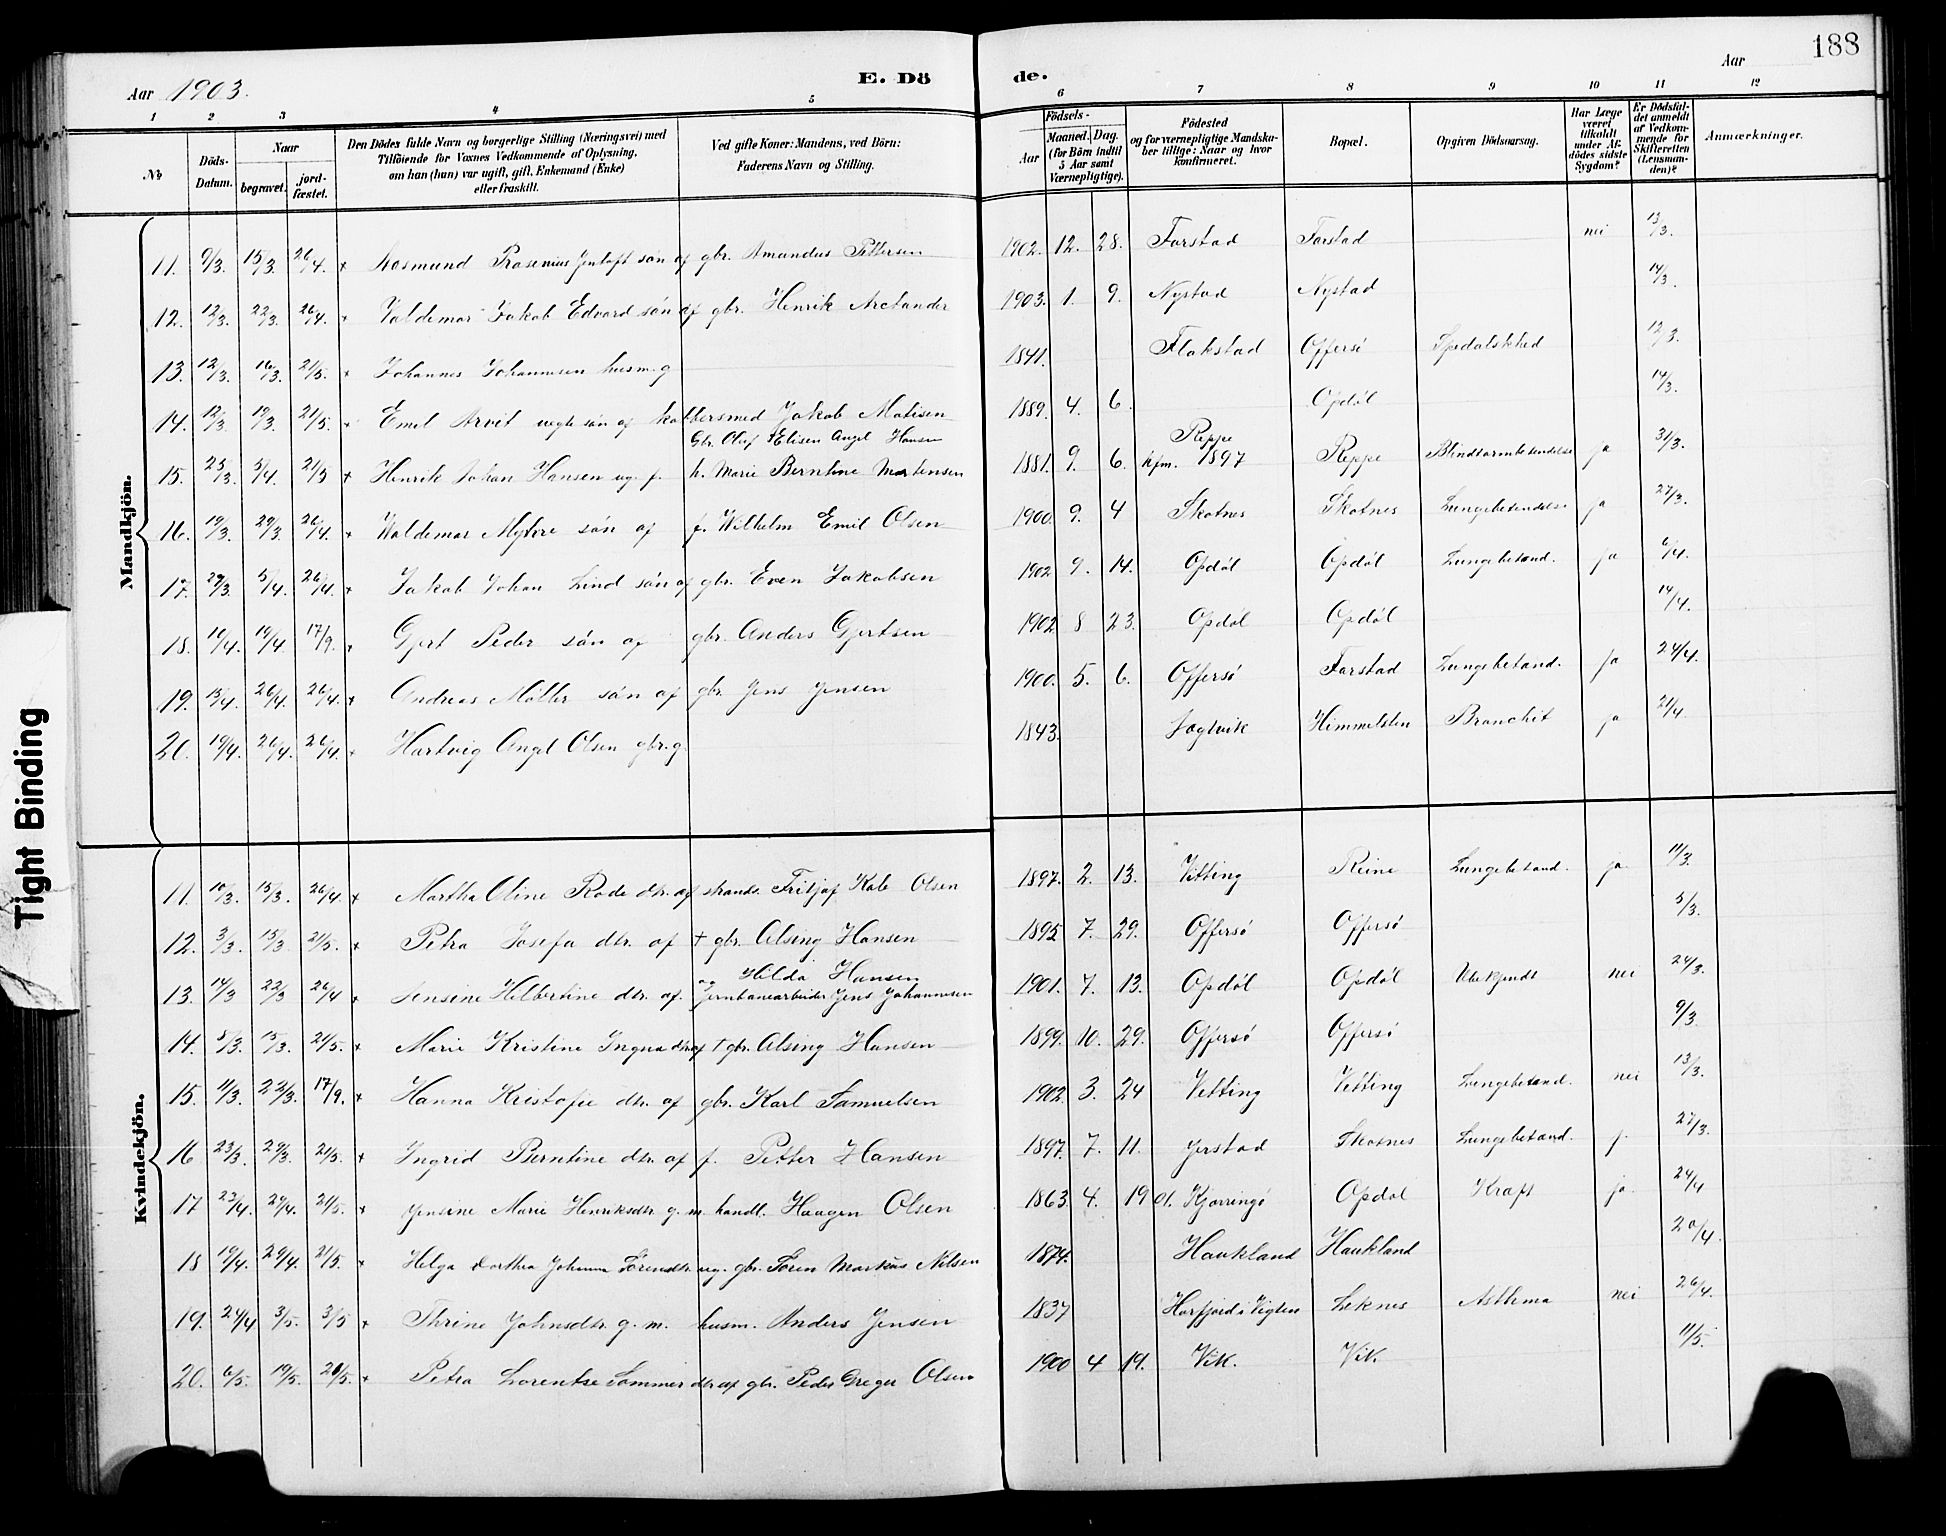 188
Aar 1903. E. Dö de. Aar
1 2 3 4 5 6 7 8 9 10 11 12
№ Döds-Datum. Naar begravet. jordfæstet. Den Dödes fulde Navn og borgerlige Stilling (Næringsvei) med Tilföiende for Voxnes Vedkommende af Oplysning, om han (hun) var ugift, gift, Enkemand (Enke) eller fraskilt. Ved gifte Koner: Mandens, ved Börn: Faderens Navn og Stilling. Födsels- Aar Maaned. Dag. (for Börn indtil 5 Aar samt Værnepligtige). Födested og for værnepligtige Mandskaber tillige: Naar og hvor konfirmeret. Bopæl. Opgiven Dödsaarsag. Har Læge været tilkaldt under Afdödes sidste Sygdom? Er Dödsfaldet anmeldt af Vedkommende for Skifteretten (Lensmanden)? Anmærkninger.
Mandkjön.
11. 9/3. 15/3. 26/4. + Aasmund Rasenius Jentoft sön af gbr. Amandus Pettersen 1902. 12. 28. Farstad Farstad nei 13/3.
12. 12/3. 22/3. 26/4. + Valdemar Jakob Edvard sön af gbr. Henrik Arctander 1903. 1. 9. Nystad Nystad 14/3.
13. 12/3. 16/3. 21/5. + Johannes Johannesen husm. g 1841. Flakstad Offersö Spedalskhed 12/3.
14. 12/3. 19/3. 21/5. Emil Arvit uegte sön af kobbersmed Jakob Matisen 1889. 4. 6. Opdöl 14/3.
Gbr. Oluf Elisen Angel Hansen
15. 25/3. 5/4. 21/5 + Henrik Johan Hansen ug. f. h. Marie Berntine Mortensen 1881. 9. 6. Reppe kfm. 1897 Reppe Blindtarmbetendelse ja 31/3.
16. 19/3. 29/3. 26/4. + Waldemar Myhre sön af f. Wilhelm Emil Olsen 1900. 9. 4 Skotnes Skotnes Lungebetendelse ja 27/3.
17. 29/3. 5/4. 26/4. + Jakob Johan Lind sön af gbr. Even Jakobsen 1902 9. 14. Opdöl Opdöl Lungebetænd. ja 6/4.
18. 10/4. 19/4. 17/9. + Gjert Peder sön af gbr. Anders Gjertsen 1902 8 23. Opdöl Opdöl 14/4.
19. 13/4. 26/4. 26/4. + Andreas Möller sön af gbr. Jens Jensen 1900. 5. 6. Offersö Farstad Lungebetænd. ja 24/4.
20. 19/4. 26/4. 26/4. + Hartvig Angel Olsen gbr. g. 1843. Sagtvik Himmelsten Bronchit ja 21/4.
Kvindekjön.
11. 10/3. 15/3. 26/4. + Martha Oline Rode dtr. af strands. Fritjof Kab Olsen 1897. 2. 13. Vetting Reine Lungebetænd. ja 11/3.
12. 3/3. 15/3 21/5. + Petra Josefa dtr. af + gbr. Alsing Hansen 1895 7. 29. Offersö Offersö 5/3.
og Hilda Hansen
13. 14/3 22/3 26/4 + Jensine Helbertine dtr. af. Jernbanearbeider Jens Johannesen 1901. 7. 13. Opdöl Opdöl Ubekjendt nei 24/3.
14. 8/3. 15/3. 21/5. + Marie Kristine Ingna dtr af + gbr. Alsing Hansen 1899. 10. 29. Offersö Offersö 9/3.
15. 11/3. 22/3. 17/9. + Hanna Kristofie dtr. af gbr. Karl Samuelsen 1902. 3. 24 Vetting Vetting Lungebetænd. nei 13/3.
16 23/3. 29/3. 21/5. + Ingrid Berntine dtr. af f. Petter Hansen 1897. 7. 11. Jerstad Skotnes Lungebetænd. j. 27/3.
17 23/4. 29/4. 21/5. + Jensine Marie Henriksdtr. g. m. handl. Haagen Olsen 1863. 4. 19 Kjærringö Opdöl Kræft ja. 24/4
18 19/4. 29/4. 21/5. + Helga Dorthea Johanna Sörensdtr. ug. gbr. Sören Markus Nilsen 1874. Haukland Haukland 20/4.
19. 24/4 3/5. 3/5 + Thrine Johnsdtr. g. m. husm. Anders Jensen 1837 Horfjord i Vigten Leknes Asthma nei 26/4.
20. 6/5. 19/5. 20/5. + Petra Lorentse Sommer dtr. af gbr. Peder Greger Olsen 1900 4 19. Vik. Vik. 11/5.
Tight Binding